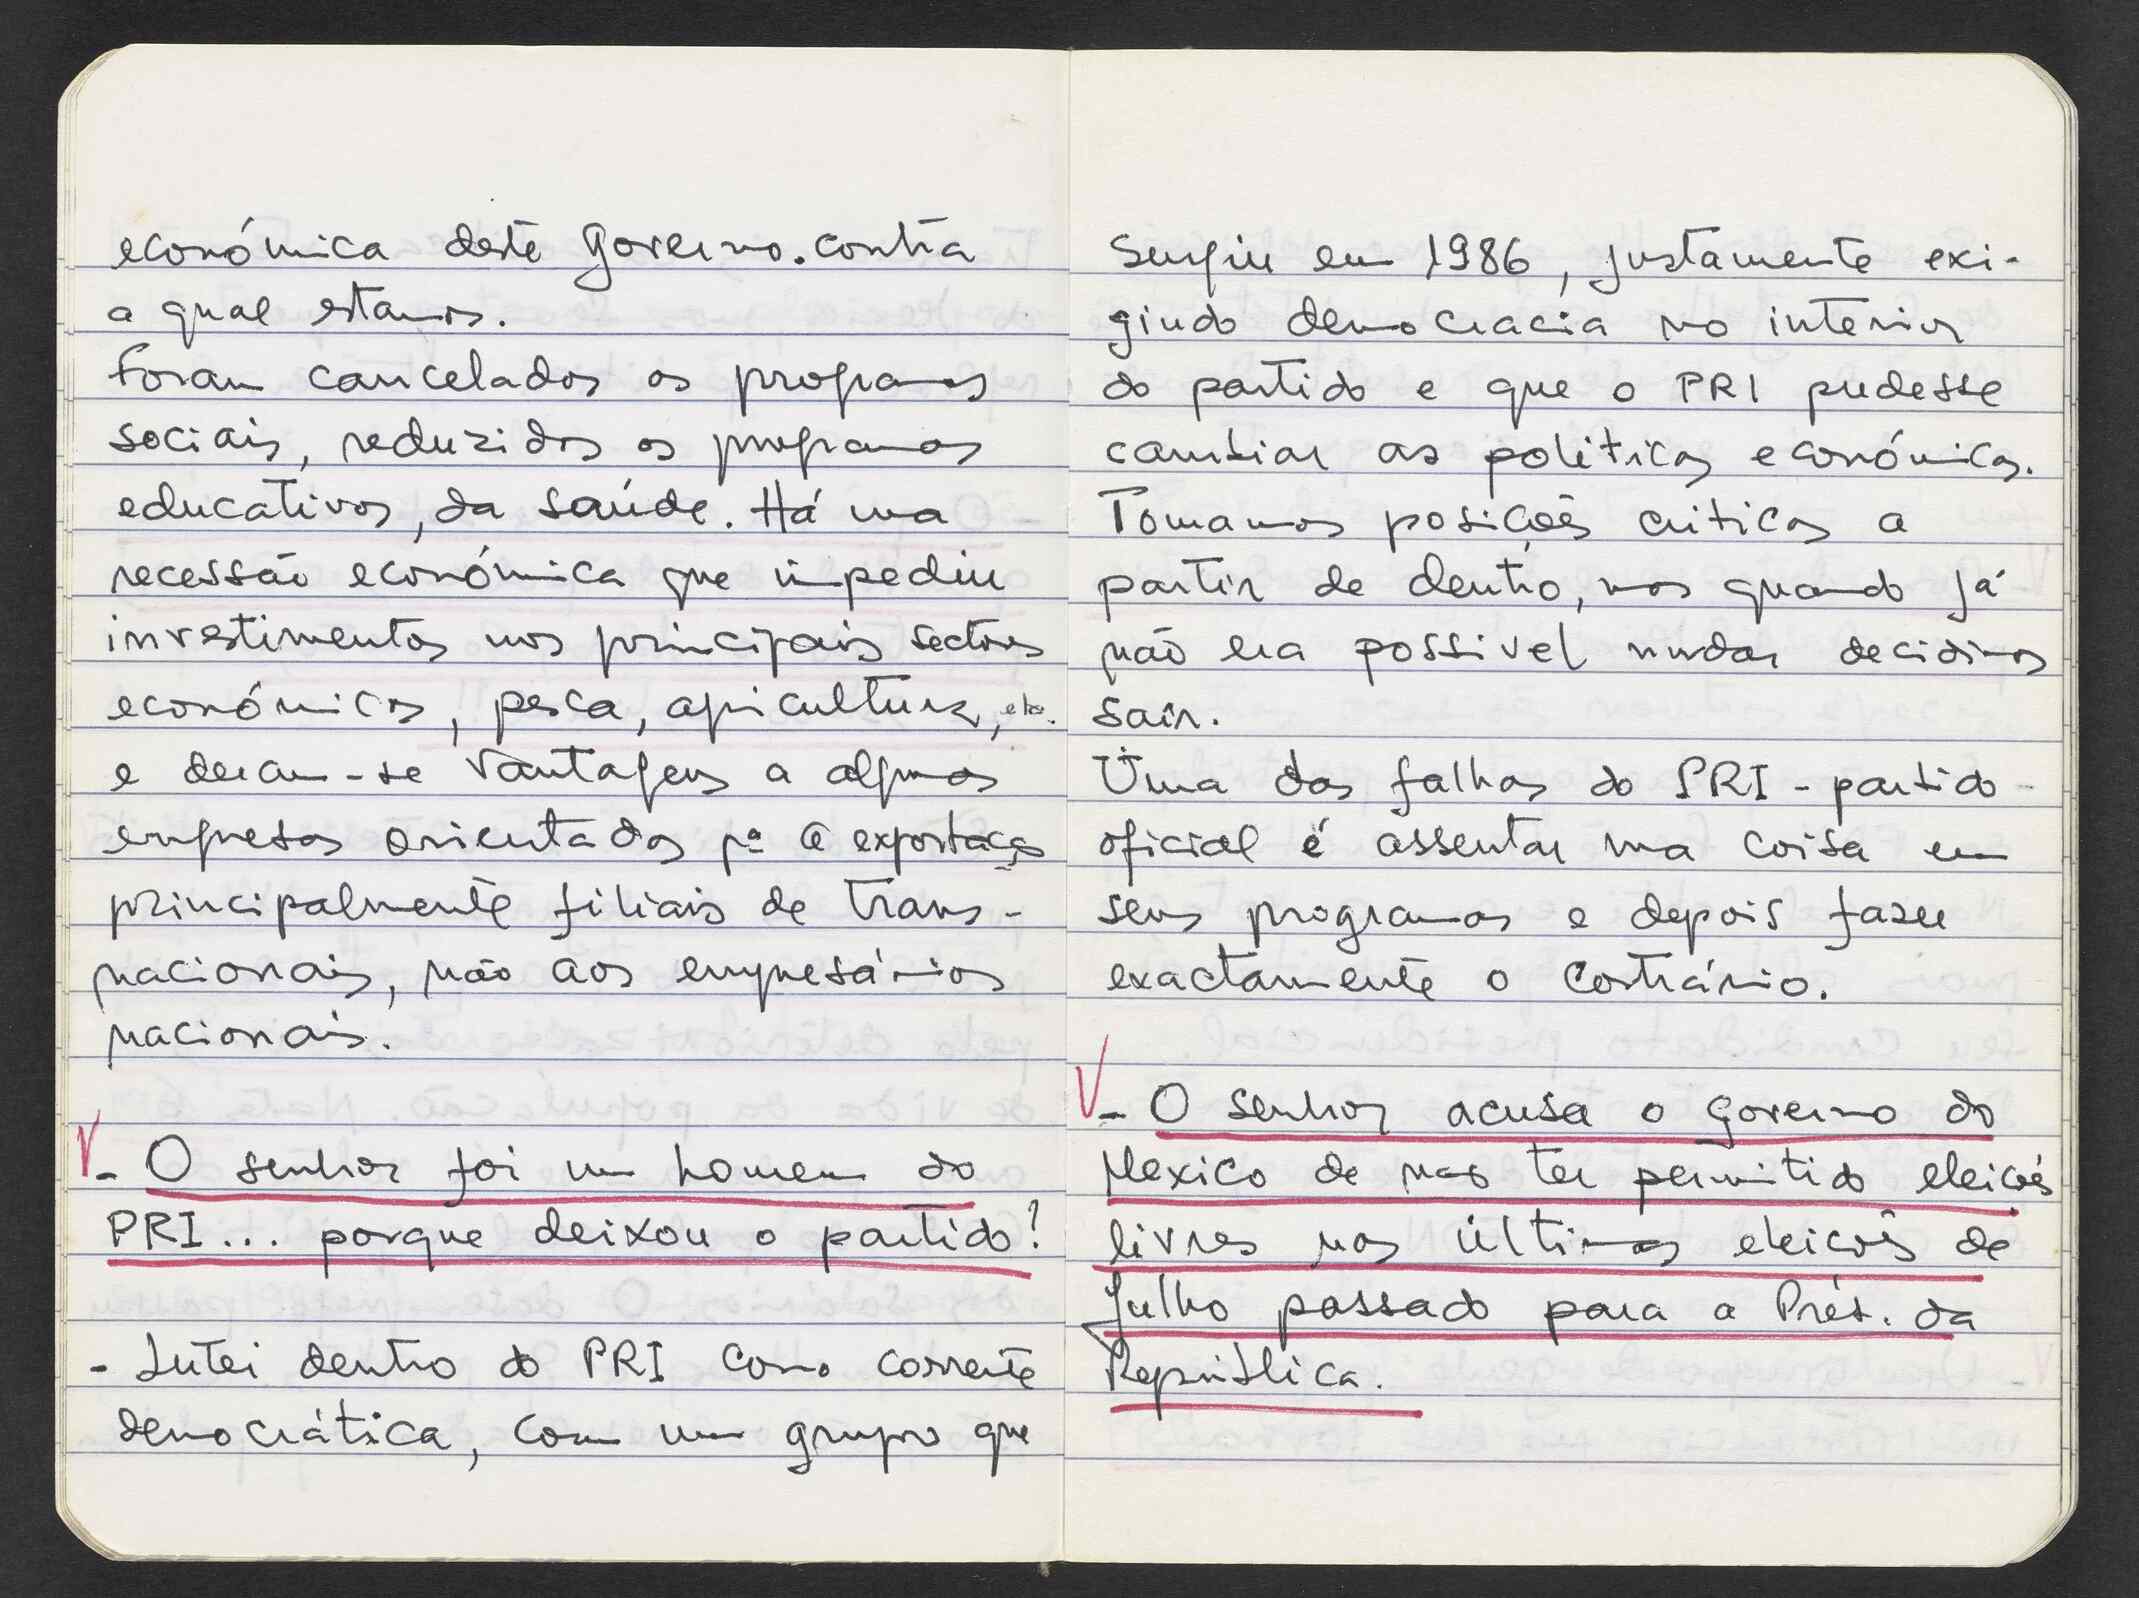 económica deste governo. contra
a qual estamos.
Foram cancelados os programas
sociais, reduzidos os programas
educativos, da saúde. Há uma
recessão económica que impediu
investimentos nos principais sectores
económicos, pesca, apicultura, etc.
e deram-se vantagens a algumas
empresas orientadas pª a exportação
principalmente filiais de trans-
nacionais, não aos empresários
nacionais.
- O senhor foi um homem do
PRI... porque deixou o partido?
- Lutei dentro do PRI como corrente
democrática, com um grupo que
surgiu em 1986, justamente exi-
gindo democracia no interior
do partido e que o PRI pudesse
cambiar as políticas económicas.
Tomamos posições criticas a
partir de dentro, mas quando já
não era possivel mudar decidimos
sair.
Uma das falhas do PRI - partido
oficial é assentar uma coisa em
seus programas e depois fazer
exactamente o contrário.
- O senhor acusa o governo do
Mexico de não ter permitido eleições
livres nas últimas eleições de
Julho passado para a Prés. da
República.